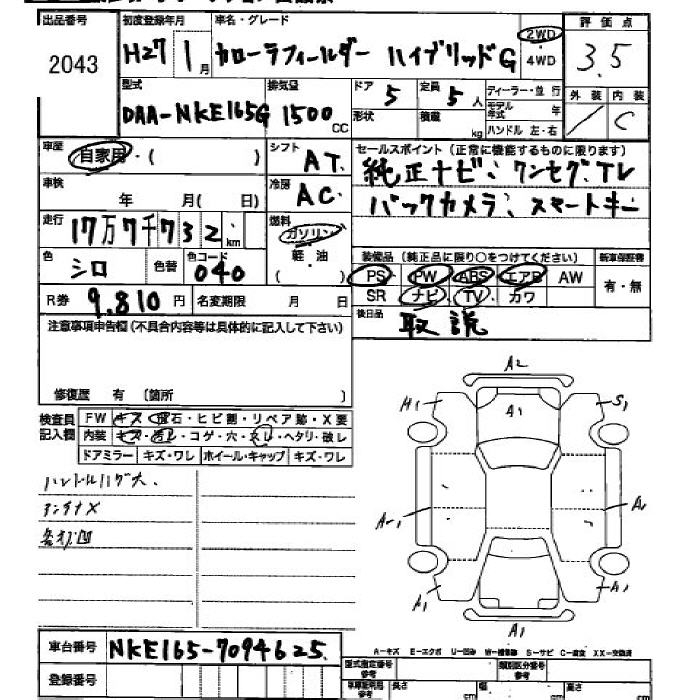 出品番号 初度登録年月 車名・グレード 評価点
2043 H27 1月 カローラフィールダー ハイブリッドG 2WD 4WD 3.5
型式 排気量 ドア 定員 ディーラー・並行 外装 内装
DAA-NKE165G 1500cc 5 5人 モデル年式 年 / C
形状 積載 kg ハンドル 左・右
車歴 自家用・( ) シフト AT セールスポイント(正常に機能するものに限ります)
純正ナビ、ワンセグTV
車検 年 月( 日) 冷房 AC
バックカメラ、スマートキー
走行 17万7千732km 燃料 ガソリン 軽・油 ( )
色 シロ 色替 色コード 040
装備品(純正品に限り○をつけてください) 新車保証書
PS PW ABS エアB AW 有・無
SR ナビ TV カワ
R券 9,810円 名変期限 月 日 後日品 取説
注意事項申告欄(不具合内容等は具体的に記入して下さい)
修復歴 有 〔箇所 〕
検査員記入欄 FW キズ・飛石・ヒビ割・リペア跡・X要
内装 キズ・汚レ・コゲ・穴・スレ・ヘタリ・破レ
ドアミラー キズ・ワレ ホイール・キャップ キズ・ワレ
ハンドルハゲ大.
アンテナX
A2
A1
A1
A1
A1
A1
S1
車台番号 NKE165-7094625
登録番号
A－キズ E－エクボ U－凹み W－補修跡 S－サビ C－腐食 XX－交換済
型式指定番号 参考 類別区分番号 参考
長さ 幅 高さ